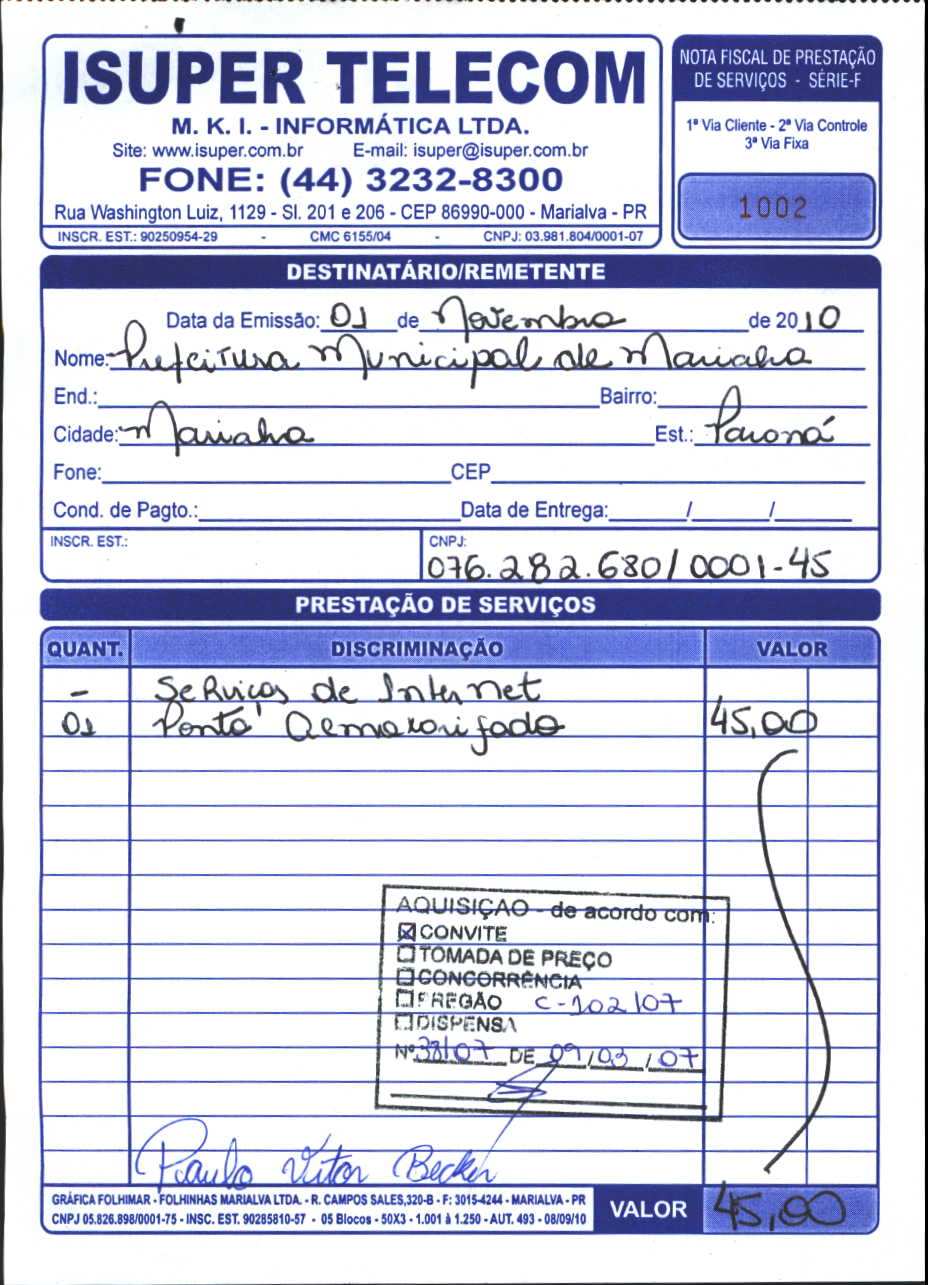 ISUPER TELECOM
M. K. I. - INFORMÁTICA LTDA.
Site: www.isuper.com.br E-mail: isuper@isuper.com.br
FONE: (44) 3232-8300
Rua Washington Luiz, 1129 - Sl. 201 e 206 - CEP 86990-000 - Marialva - PR
INSCR. EST.: 90250954-29 - CMC 6155/04 - CNPJ: 03.981.804/0001-07
NOTA FISCAL DE PRESTAÇÃO
DE SERVIÇOS - SÉRIE-F
1ª Via Cliente - 2ª Via Controle
3ª Via Fixa
1002
DESTINATÁRIO/REMETENTE
Data da Emissão: 01 de Novembro de 2010
Nome: Prefeitura Municipal de Marialva
End.: Bairro:
Cidade: Marialva Est.: Paraná
Fone: CEP
Cond. de Pagto.: Data de Entrega: / /
INSCR. EST.: CNPJ:
076.282.680/0001-45
PRESTAÇÃO DE SERVIÇOS
QUANT. DISCRIMINAÇÃO VALOR
- Serviços de Internet
01 Ponto Almoxarifado 45,00
AQUISIÇÃO - de acordo com:
CONVITE
TOMADA DE PREÇO
CONCORRÊNCIA
PREGÃO C-102/07
DISPENSA
Nº 38/07 DE 09/03/07
Paulo Vitor Becker
GRÁFICA FOLHIMAR - FOLHINHAS MARIALVA LTDA. - R. CAMPOS SALES,320-B - F: 3015-4244 - MARIALVA - PR
CNPJ 05.826.898/0001-75 - INSC. EST. 90285810-57 - 05 Blocos - 50X3 - 1.001 à 1.250 - AUT. 493 - 08/09/10
VALOR 45,00